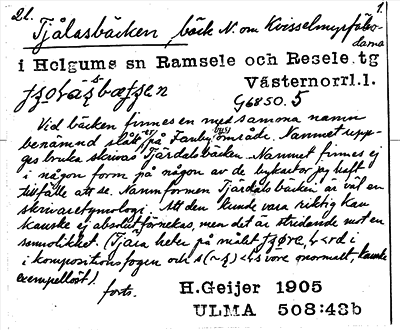 21. 1.
Tjålasbäcken, bäck N. om Kvisselmyrfäbo-
darna
i Helgums sn Ramsele och Resele tg
Västernorrl.l.
G6850.5
Vid bäcken finnes en med samma namn
benämnd slått på Fanby område. Namnet upp-
ges bruka skrivas Tjärdalsbäcken. Namnet finnes ej
i någon form på någon av de bykartor jag haft
tillfälle att se. Namnformen Tjärdalsbäcken är väl en
skrivareetymologi. Att den kunde vara riktig kan
kanske ej absolut förnekas, men det är stridande mot en
sannolikhet. (Tjära heter på målet
i kompositionsfogen och vore onormalt, kanske
exempellöst).
forts.
H.Geijer 1905
ULMA 508:43b